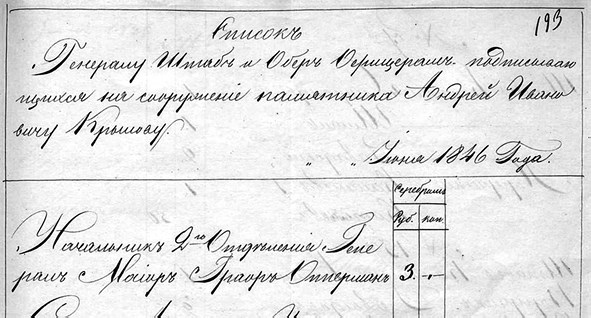 193
Списокъ
Генералу Штабъ и Оберъ Офицерамъ подписываю
щихся на сооруженіе памятника Андрей Ивано
вичу Крылову.
" " Іюня 1846 Года.
Серебромъ
Руб. коп.
Начальникъ 2го Отдѣленія Гене
ралъ Маіоръ Графъ Опперманъ 3. -"-